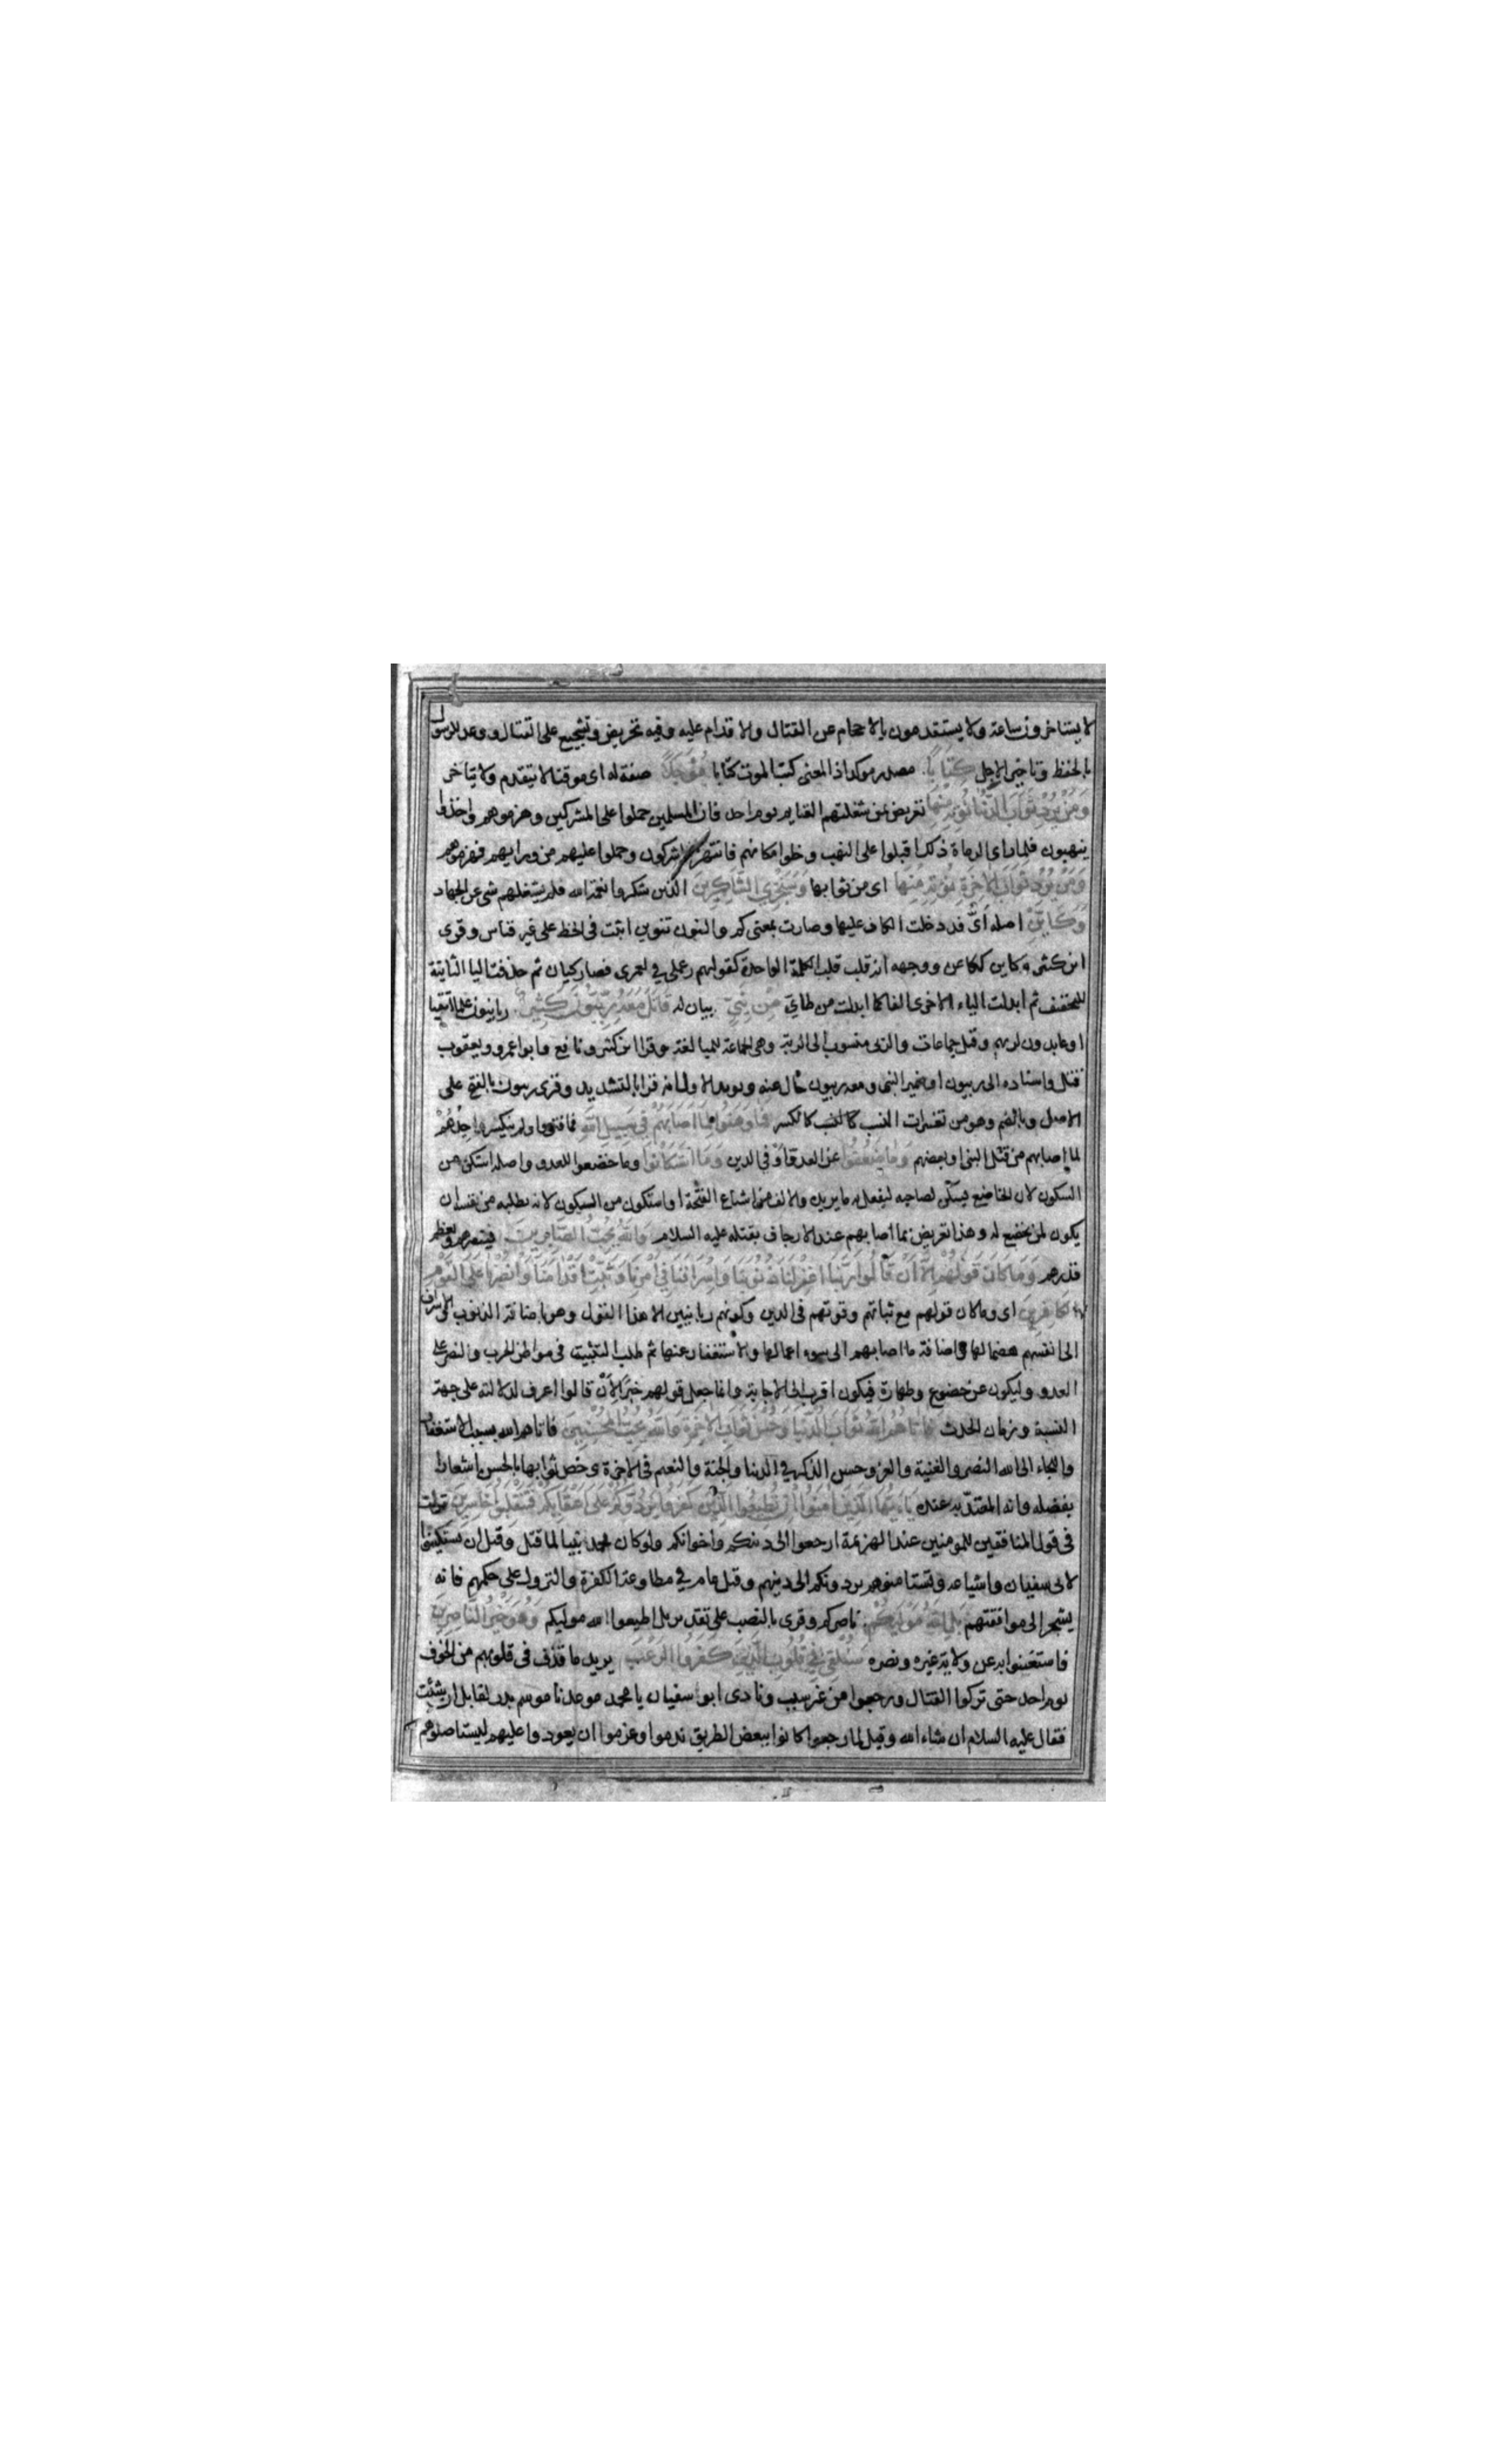 لا يستاخرون ساعة ولا يستقدمون بالاحجام عن القتال والاقدام عليه وفيه تحريض وتشجيع على القتال ووعد للرسول
بالحفظ وتاخير الاجل كِتَابًا مصدر موكد اذ المعنى كتب الموت كتابا مُؤَجَّلًا صفة له اى موقتا لا يتقدم ولا يتاخر
وَمَنْ يُرِدْ ثَوَابَ الدُّنْيَا نُؤْتِهِ مِنْهَا تعريض بمن شغلتهم الغنايم يوم احد فان المسلمين حملوا على المشركين وهزموهم واخذوا
ينهبون فلما راى الرماة ذلك اقبلوا على النهب وخلوا مكانهم فانتهز المشركون وحملوا عليهم من ورايهم فهزموهم
وَمَنْ يُرِدْ ثَوَابَ الْآخِرَةِ نُؤْتِهِ مِنْهَا اى من ثوابها وَسَنَجْزِي الشَّاكِرِينَ الذين شكروا نعمة الله فلم يشغلهم شى عن الجهاد
وَكَأَيِّنْ اصله أيّ قد دخلت الكاف عليها وصارت بمعنى كم والنون تنوين اثبت فى الخط على غير قياس وقرى
ابن كثير وكاين ككاعن ووجهه انه قلب قلب الكلمة الواحدة كقولهم رعملى في لعمرى فصار كيان ثم حذفت اليا الثانية
للتخفيف ثم ابدلت الياء الاخرى الفا كما ابدلت من طايّ مِنْ نَبِيٍّ بيان له قَاتَلَ مَعَهُ رِبِّيُّونَ كَثِيرٌ ربانيون علما اتقيا
او عابدون لربهم وقيل جماعات والربى منسوب الى الربة وهى الجماعة للمبالغة وقرا ابن كثير ونافع وابو عمرو ويعقوب
قتل واسناده الى ربيون او ضمير النبى ومعه ربيون حال عنه ويويد الاول انه قرا بالتشديد وقرى ربيون بالفتح على
الاصل وبالضم وهو من تغيرات النسب كالكسر فَمَا وَهَنُوا لِمَا أَصَابَهُمْ فِي سَبِيلِ اللَّهِ فما فتروا ولم ينكسر جدهم
لما اصابهم من قتل النبى او بعضهم وَمَا ضَعُفُوا عن العدو او فى الدين وَمَا اسْتَكَانُوا وما خضعوا للعدو واصله استكن من
السكون لان الخاضع يسكن لصاحبه ليفعل به ما يريد والالف من اشباع الفتحة او استكون من السكون لانه يطلب من نفسه ان
يكون لمن يخضع له وهذا تعريض بما اصابهم عند الارجاف بقتله عليه السلام وَاللَّهُ يُحِبُّ الصَّابِرِينَ فينصرهم ويعظم
قدرهم وَمَا كَانَ قَوْلَهُمْ إِلَّا أَنْ قَالُوا رَبَّنَا اغْفِرْ لَنَا ذُنُوبَنَا وَإِسْرَافَنَا فِي أَمْرِنَا وَثَبِّتْ أَقْدَامَنَا وَانْصُرْنَا عَلَى الْقَوْمِ
الْكَافِرِينَ اى وما كان قولهم مع ثباتهم وقوتهم فى الدين وكونهم ربانيين الا هذا القول وهو اضافة الذنوب والاسراف
الى انفسهم هضما لها واضافة ما اصابهم الى سوء اعمالها والاستغفار عنها ثم طلب التثبيت فى مواطن الحرب والنصر على
العدو وليكون عن خضوع وطهارة فيكون اقرب الى الاجابة وانما جعل قولهم خبرا لان أن قالوا اعرف لدلالته على جهة
النسبة وزمان الحدث فَآتَاهُمُ اللَّهُ ثَوَابَ الدُّنْيَا وَحُسْنَ ثَوَابِ الْآخِرَةِ وَاللَّهُ يُحِبُّ الْمُحْسِنِينَ فاتاهم الله بسبب الاستغفار
واللجاء الى الله النصر والغنيمة والعز وحسن الذكر في الدنيا والجنة والنعيم فى الاخرة وخص ثوابها بالحسن اشعارا
بفضله وانه المعتدّ به عنده يَا أَيُّهَا الَّذِينَ آمَنُوا إِنْ تُطِيعُوا الَّذِينَ كَفَرُوا يَرُدُّوكُمْ عَلَى أَعْقَابِكُمْ فَتَنْقَلِبُوا خَاسِرِينَ نزلت
فى قول المنافقين للمومنين عند الهزيمة ارجعوا الى دينكم واخوانكم ولو كان محمد نبيا لما قتل وقيل ان تستكينوا
لابى سفيان واشياعه وتستامنوهم يردوكم الى دينهم وقيل عام في مطاوعة الكفرة والنزول على حكمهم فانه
يستجر الى موافقتهم بَلِ اللَّهُ مَوْلَاكُمْ ناصركم وقرى بالنصب على تقدير بل اطيعوا الله موليكم وَهُوَ خَيْرُ النَّاصِرِينَ
فاستغنوا به عن ولاية غيره ونصره سَنُلْقِي فِي قُلُوبِ الَّذِينَ كَفَرُوا الرُّعْبَ يريد ما قذف فى قلوبهم من الخوف
يوم احد حتى تركوا القتال ورجعوا من غير سبب ونادى ابو سفيان يا محمد موعدنا موسم بدر لقابل ان شئت
فقال عليه السلام ان شاء الله وقيل لما رجعوا كانوا ببعض الطريق ندموا وعزموا ان يعودوا عليهم ليستاصلوهم